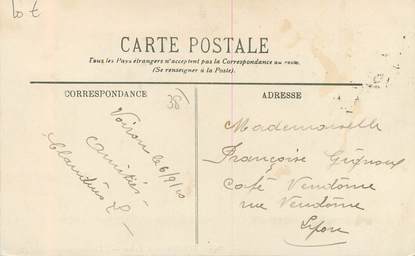 10 €
CARTE POSTALE
Tous les Pays étrangers n'acceptent pas la Correspondance au recto.
(Se renseigner à la Poste).
CORRESPONDANCE
38
Voiron le 6/9/10
amitiés
Claudius
ADRESSE
Mademoiselle
Françoise
Café Vendôme
rue Vendôme
Lyon